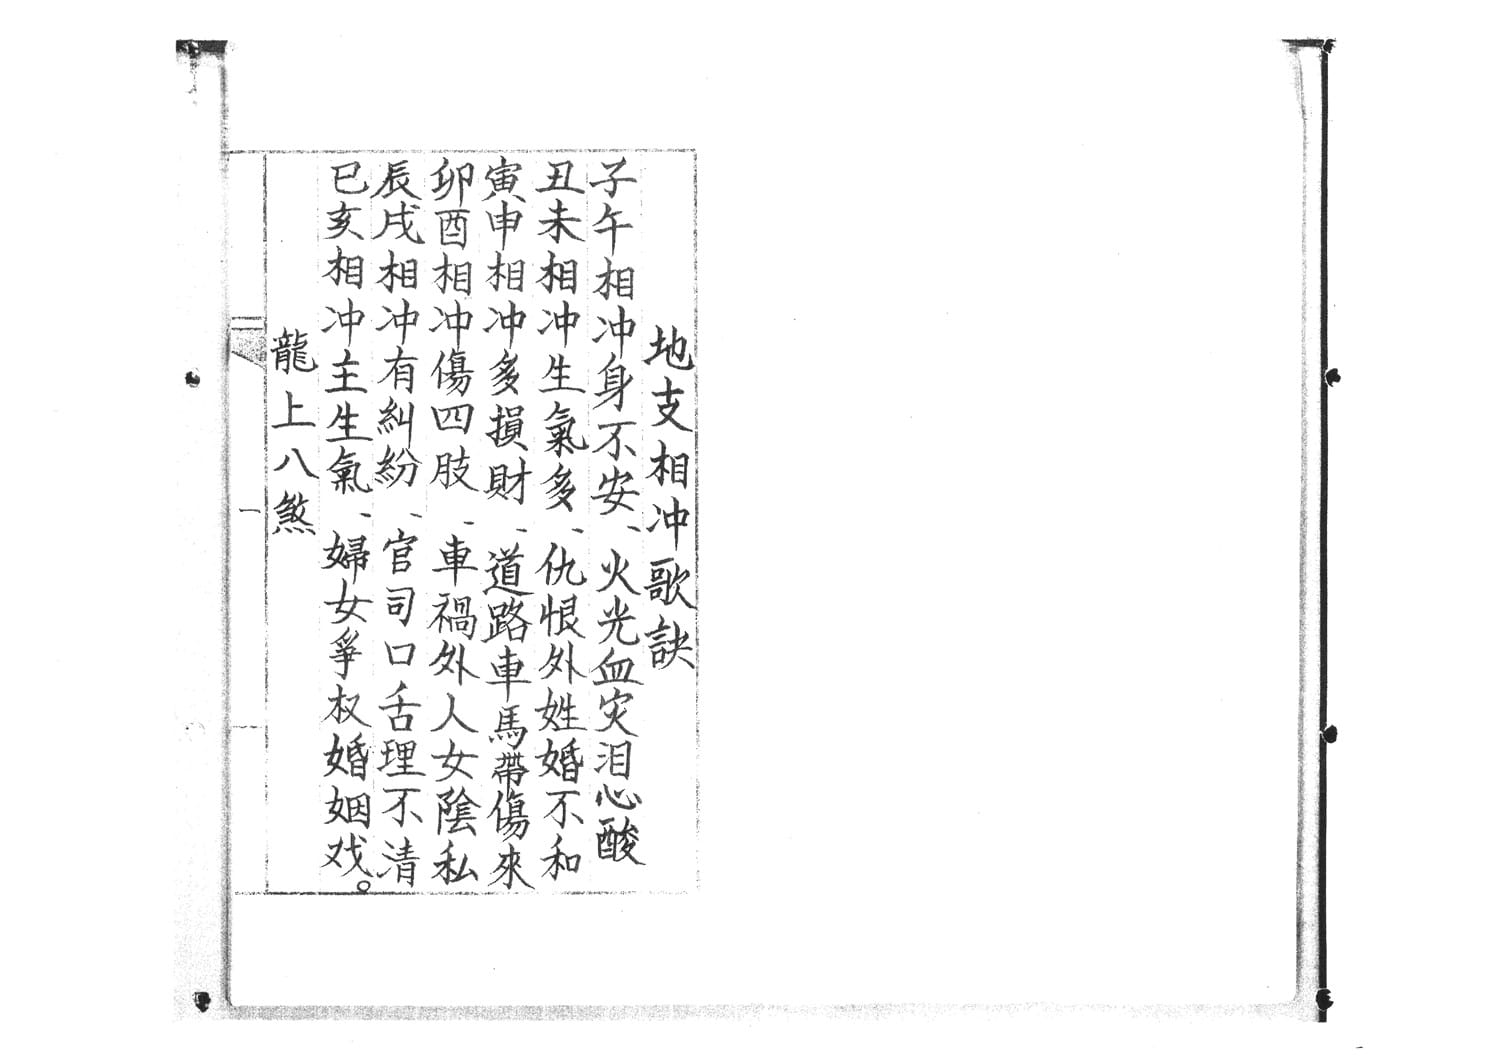 地支相冲歌訣
子午相冲身不安、火光血灾泪心酸
丑未相冲生氣多、仇恨外姓婚不和
寅申相冲多損財、道路車馬帶傷來
卯酉相冲傷四肢、車禍外人女陰私
辰戌相冲有糾紛、官司口舌理不清
巳亥相冲主生氣、婦女爭权婚姻戏。
龍上八煞
一